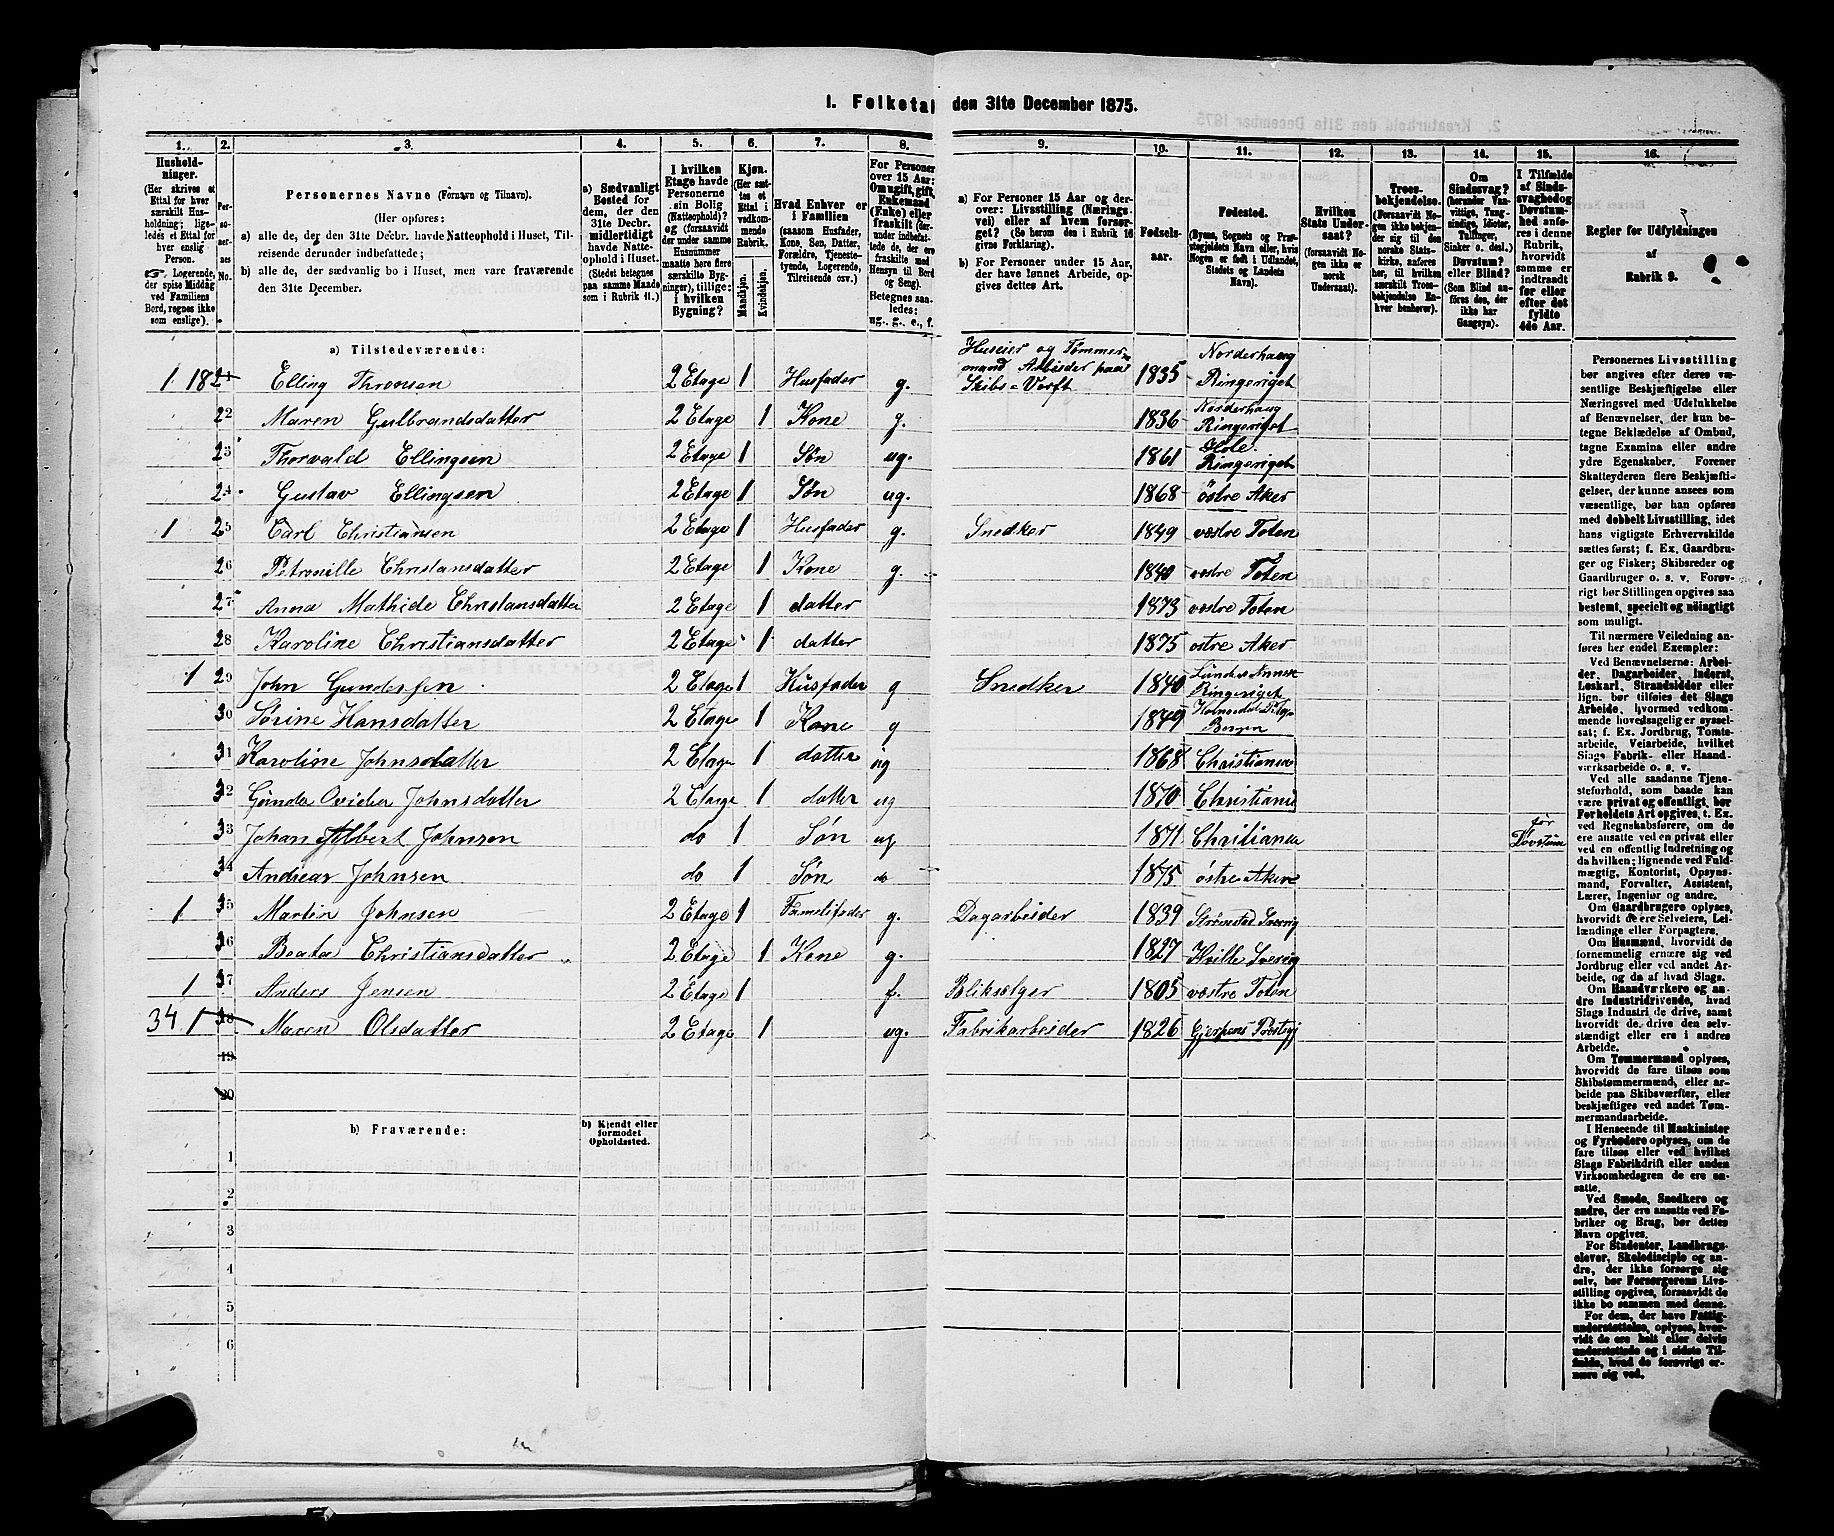 1. Folketal den 31te December 1875.
1. 2. 3. 4. 5. 6. 7. 8. 9. 10. 11. 12. 13. 14. 15. 16.
Hushold-
ninger.
(Her skrives et
Ettal for hver
særskilt Hus-
holdning; lige-
ledes et Ettal for
hver enslig
Person.
☞ Logerende,
der spise Middag
ved Familiens
Bord, regnes ikke
som enslige).
Per-
so-
ner-
nes
No.
Personernes Navne (Fornavn og Tilnavn).
(Her opføres:
a) alle de, der den 31te Decbr. havde Natteophold i Huset, Til-
reisende derunder indbefattede;
b) alle de, der sædvanlig bo i Huset, men vare fraværende
den 31te December.
a) Sædvanligt
Bosted for
dem, der den
31te Decbr.
midlertidigt
havde Natte-
ophold i Huset.
(Stedet betegnes
paa samme Maade
som i Rubrik 11.)
I hvilken
Etage havde
Personerne
sin Bolig
(Natteophold)?
og (forsaavidt
der under samme
Husnummer
maatte høre flere
særskilte Byg-
ninger), tillige:
i hvilken
Bygning?
Kjøn.
(Her sæt-
tes et
Ettal i
vedkom-
mende
Rubrik.
Mandkjøn.
Kvindekjøn.
Hvad Enhver er
i Familien
(saasom Husfader,
Kone, Søn, Datter,
Forældre, Tjeneste-
tyende, Logerende,
Tilreisende osv.)
For Personer
over 15 Aar:
Om ugift, gift,
Enkemand
(Enke) eller
fraskilt (der-
under indbefat-
tede de, der ere
fraskilte med
Hensyn til Bord
og Seng).
Betegnes saa-
ledes:
ug., g., e., f.
a) For Personer 15 Aar og der-
over: Livsstilling (Nærings-
vei) eller af hvem forsør-
get? (Se herom den i Rubrik 16
givne Forklaring).
b) For Personer under 15 Aar,
der have lønnet Arbeide, op-
gives dettes Art.
Fødsels-
aar.
Fødested.
(Byens, Sognets og Præ-
stegjeldets Navn eller, hvis
Nogen er født i Udlandet,
Stedets og Landets
Navn).
Hvilken
Stats Under-
saat?
(forsaavidt No-
gen ikke er
norsk
Undersaat).
Troes-
bekjendelse.
(Forsaavidt No-
gen ikke bekjen-
der sig til den
norske Stats-
kirke, anføres
her, til hvilken
særskilt Troes-
bekjendelse En-
hver henhører).
Om
Sindssvag?
(herunder Van-
vittige, Tung-
sindige, Idioter,
Tullinger,
Sinker o. desl.)
Døvstum?
eller Blind?
(Som Blind an-
føres den, der
ikke har
Gangsyn).
I Tilfælde
af Sinds-
svaghed og
Døvstum-
hed anfø-
res i denne
Rubrik,
hvorvidt
samme er
indtraadt
før eller
efter det
fyldte
4de Aar.
Regler for Udfyldningen
af
Rubrik 9.
a) Tilstedeværende:
1 18 21 Elling Thronsen 2 Etage 1 Husfader g. Huseier og Tømmermand Arbeider paa Skibs=Verft 1835 Norderhaug Ringeriget
22 Maren Gulbrandsdatter 2 Etage 1 Kone g. 1836 Norderhaug Ringeriget
23 Thorvald Ellingsen 2 Etage 1 Søn ug. 1861 Hole Ringeriget
24 Gustav Ellingsen 2 Etage 1 Søn ug. 1868 østre Aker
1 25 Carl Christiansen 2 Etage 1 Husfader g. Snedker 1849 vestre Toten
26 Petronille Christansdatter 2 Etage 1 Kone g. 1840 vestre Toten
27 Anna Mathide Christansdatter 2 Etage 1 datter 1873 vestre Toten
28 Karoline Christiansdatter 2 Etage 1 datter 1875 østre Aker
1 29 John Gundersen 2 Etage 1 Husfader g Snedker 1840 Lunder Annex Ringeriget
30 Sørine Hansdatter 2 Etage 1 Kone g 1849 Bergen
31 Karoline Johnsdatter 2 Etage 1 datter ug 1868 Christiania
32 Gunda Ovidia Johnsdatter 2 Etage 1 datter ug 1870 Christiania
33 Johan Albert Johnsen do 1 Søn ug 1871 Christiania før Døvstum
34 Andreas Johnsen do 1 Søn do 1875 østre Aker
1 35 Martin Johnsen 2 Etage 1 Familifader g. Dagarbeider 1839 Strømstad Sverig
36 Beata Christiansdatter 2 Etage 1 Kone g. 1827 Hville Sverig
1 37 Anders Jensen 2 Etage 1 f. Bliksælger 1805 vestre Toten
34 1 38 Maren Olsdatter 2 Etage 1 ug. Fabrikarbeider 1826 Gjerpens Prestegj
19
20
b) Fraværende:
b) Kjendt eller
formodet
Opholdssted.
1
2
3
4
5
6
Personernes Livsstilling
bør angives efter deres væ-
sentlige Beskjæftigelse eller
Næringsvei med Udelukkelse
af Benævnelser, der kun be-
tegne Beklædelse af Ombud,
tagne Examina eller andre
ydre Egenskaber. Forener
Skatteyderen flere Beskjæfti-
gelser, der kunne ansees som
væsentlige, bør han opføres
med dobbelt Livsstilling, idet
hans vigtigste Erhvervskilde
sættes først; f. Ex. Gaardbru-
ger og Fisker; Skibsreder og
Gaardbruger o. s. v. Forøv-
rigt bør Stillingen opgives saa
bestemt, specielt og nøiagtigt
som muligt.
Til nærmere Veiledning an-
føres her endel Exempler:
Ved Benævnelserne: Arbei-
der, Dagarbeider, Inderst,
Løskarl, Strandsidder eller
lign. bør tilføies det Slags
Arbeide, hvormed vedkom-
mende hovedsagelig er syssel-
sat; f. Ex. Jordbrug, Tomte-
arbeide, Veiarbeide, hvilket
Slags Fabrik- eller Haand-
værksarbeide o. s. v.
Ved alle saadanne Tjene-
steforhold, som baade kan
være privat og offentligt, bør
Forholdets Art opgives, t. Ex.
ved Regnskabsførere, om de
ere ansatte ved en privat eller
ved en offentlig Indretning og
da hvilken; lignende ved Fuld-
mægtig, Kontorist, Opsyns-
mand, Forvalter, Assistent,
Lærer, Ingeniør og andre.
Om Gaardbrugere oplyses,
hvorvidt de ere Selveiere, Lei-
lændinge eller Forpagtere.
Om Husmænd, hvorvidt de
fornemmelig ernære sig ved
Jordbrug eller ved andet Ar-
beide, og da af hvad Slags.
Om Haandværkere og an-
dre Industridrivende, hvad
Slags Industri de drive, samt
hvorvidt de drive den selv-
stændigt eller ere i andres
Arbeide.
Om Tømmermænd oplyses,
hvorvidt de fare tilsøs som
Skibstømmermænd, eller ar-
beide paa Skibsværfter, eller
beskjæftiges ved andet Tøm-
mermandsarbeide.
I Henseende til Maskinister
og Fyrbødere oplyses, om de
fare tilsøs eller ved hvilket
Slags Fabrikdrift eller anden
Virksomhedsgren de ere an-
satte.
Ved Smede, Snedkere og
andre, der ere ansatte ved Fa-
briker og Brug, bør dettes
Navn opgives.
For Studenter, Landbrugs-
elever, Skoledisciple og an-
dre, der ikke forsørge sig
selv, bør Forsørgerens Livs-
stilling opgives, forsaavidt de
ikke bo sammen med denne.
For dem, der have Fattig-
understøttelse, oplyses, hvor-
vidt de ere helt eller delvis
understøttede og i sidste Til-
fælde, hvad de forøvrigt er-
nære sig ved.